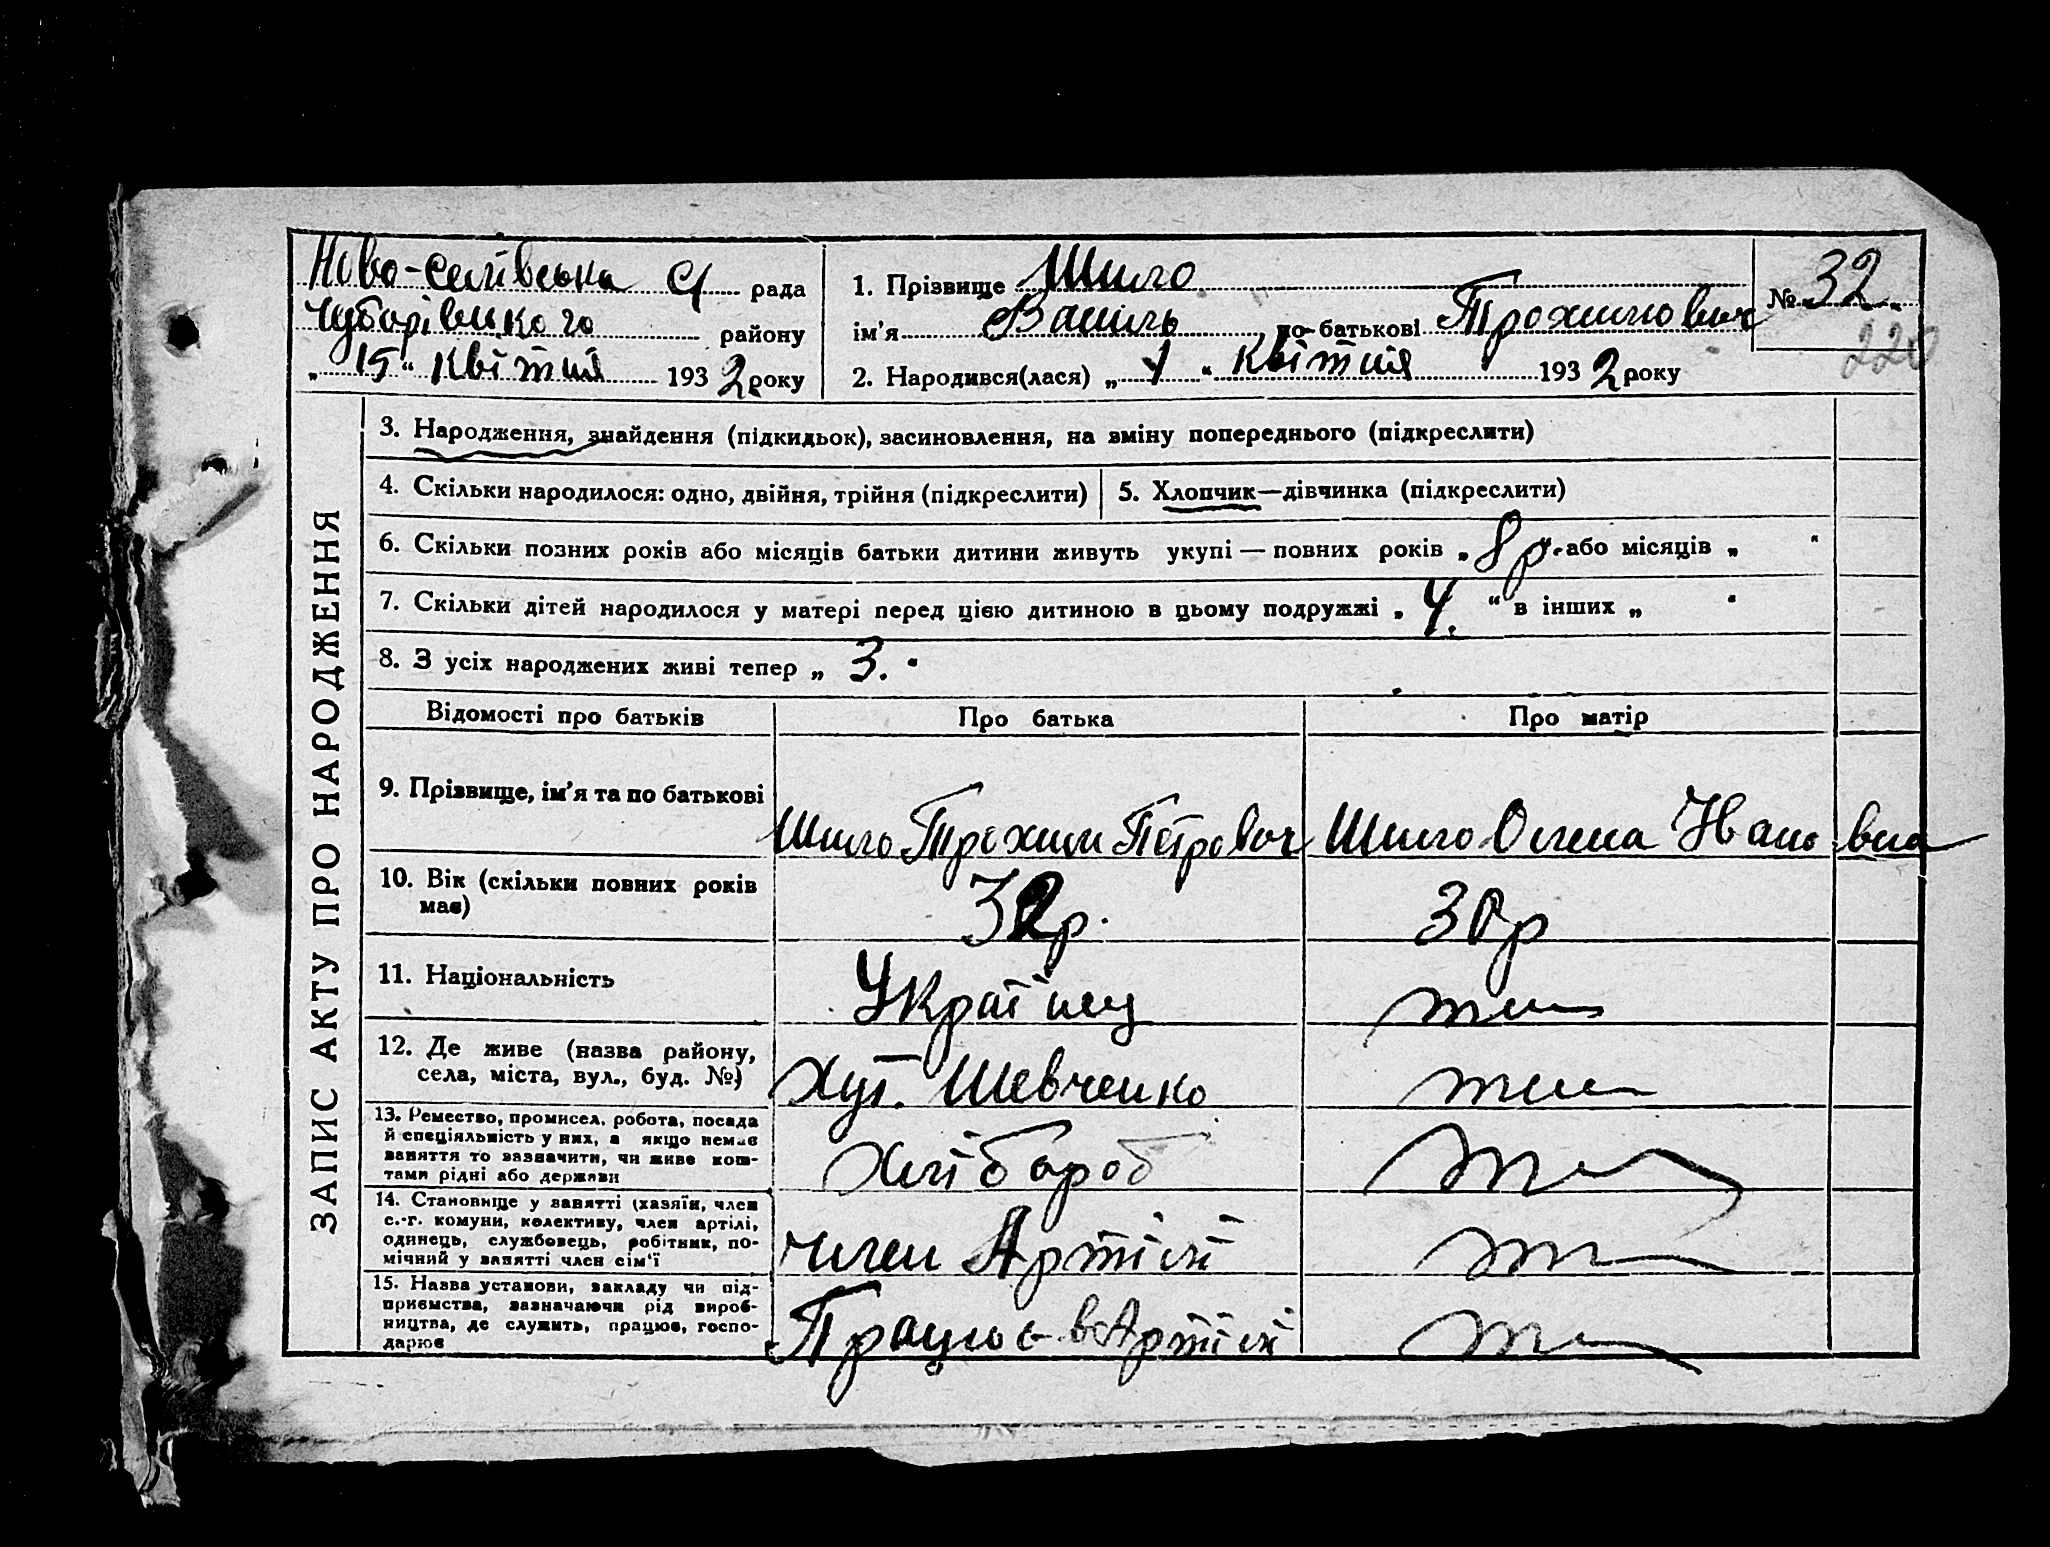 Ново-селівська С/ рада
Чубарівського району
„ 15 “ Квітня 1932 року
1. Прізвище Шило
ім'я Василь по-батькові Трохимович
2. Народився(лася) „ 1 “ Квітня 1932 року
№ 32.
220
ЗАПИС АКТУ ПРО НАРОДЖЕННЯ
3. Народження, знайдення (підкидьок), засиновлення, на зміну попереднього (підкреслити)
4. Скільки народилося: одно, двійня, трійня (підкреслити)
5. Хлопчик—дівчинка (підкреслити)
6. Скільки позних років або місяців батьки дитини живуть укупі — повних років „ 8 р. “ або місяців „ “
7. Скільки дітей народилося у матері перед цією дитиною в цьому подружжі „ 4. “ в інших „ “
8. З усіх народжених живі тепер „ 3. “
Відомості про батьків Про батька Про матір
9. Прізвище, ім'я та по батькові
Шило Трохим Петрович
Шило Олена Ивановна
10. Вік (скільки повних років
має)
32 р.
30 р
11. Національність
Українц
12. Де живе (назва району,
села, міста, вул., буд. №)
Хут. Шевченко
13. Ремество, промисел, робота, посада
й спеціяльність у них, а якщо немає
заняття то зазначити, чи живе кош-
тами рідні або держави
Хлібороб
14. Становище у занятті (хазяїн, член
с.-г. комуни, колективу, член артілі,
одинець, службовець, робітник, по-
мічний у занятті член сім'ї
член Артілі
15. Назва установи, закладу чи під-
приємства, зазначаючи рід вироб-
ництва, де служить, працює, госпо-
дарює
Працює в Артілі